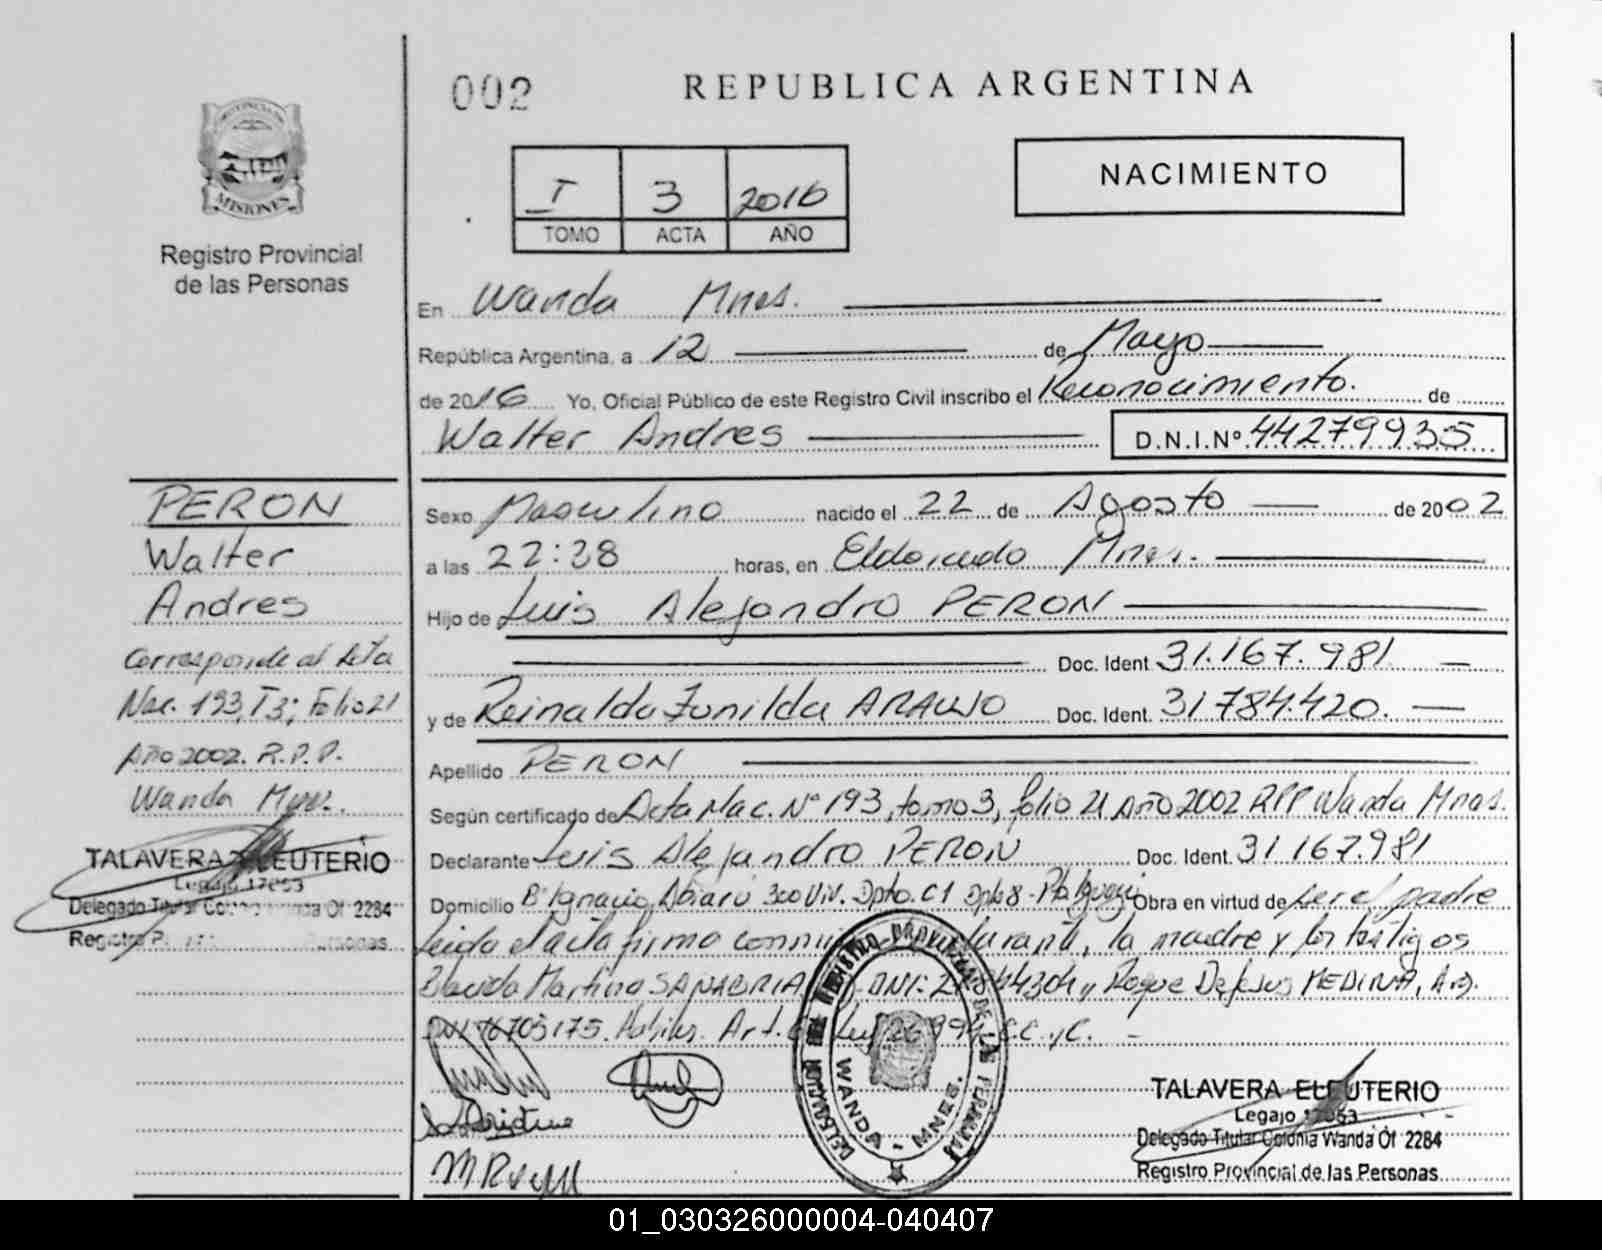 002
REPUBLICA ARGENTINA
MISIONES
Registro Provincial
de las Personas
I 3 2016
TOMO ACTA AÑO
NACIMIENTO
En Wanda Mnes.
República Argentina, a 12 de Mayo
de 2016 Yo, Oficial Público de este Registro Civil inscribo el Reconocimiento. de
Walter Andres D.N.I.Nº 44279935
PERON
Walter
Andres
Corresponde al Acta
Nac. 193, T3; Folio 21
Año 2002. R.P.P.
Wanda Mnes.
TALAVERA ELEUTERIO
Legajo 17053
Delegado Titular Colonia Wanda Of 2284
Registro Personas
Sexo Masculino nacido el 22 de Agosto de 2002
a las 22:38 horas, en Eldorado Mnes.
Hijo de Luis Alejandro PERON
Doc. Ident. 31.167.981
y de Reinalda Zunilda ARAUJO Doc. Ident. 31784.420.
Apellido PERON
Según certificado de Acta Nac. Nº 193, tomo 3, folio 21 Año 2002 RPP Wanda Mnes.
Declarante Luis Alejandro PERON Doc. Ident. 31167.981
Domicilio Bº Ignacio Abiaru 300 Viv. Dpto. C1 Obra en virtud de ser el padre
Leida el acta firma la madre y los testigos
Martina SANABRIA DNI: y Roque De Jesus MEDINA, Arg.
DNI Art. C.C.yC.
DELEGACION DEL REGISTRO PROVINCIAL DE LAS PERSONAS
WANDA - MNES.
TALAVERA ELEUTERIO
Legajo 17053
Delegado Titular Colonia Wanda Of 2284
Registro Provincial de las Personas
01_030326000004-040407